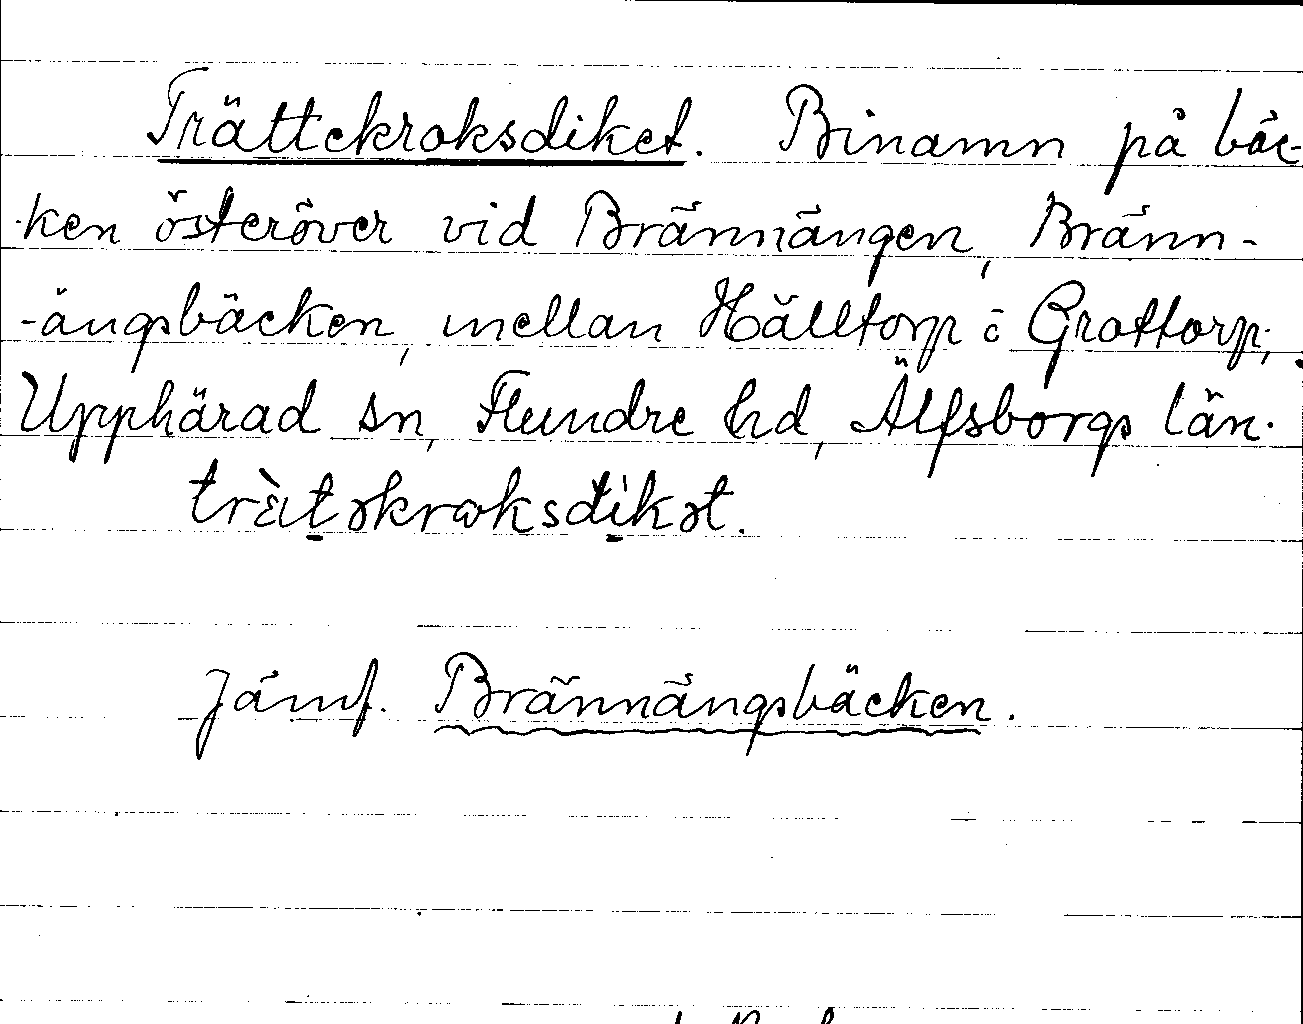 Trättekroksdiket. Binamn på bäc-
ken österöver vid Brännängen, Bränn-
-ängsbäcken, mellan Hälltorp o Grottorp,
Upphärad sn, Flundre hd, Älfsborgs län.
trὲt̠əkrωksdi̠kət.
Jämf. Brännängsbäcken.